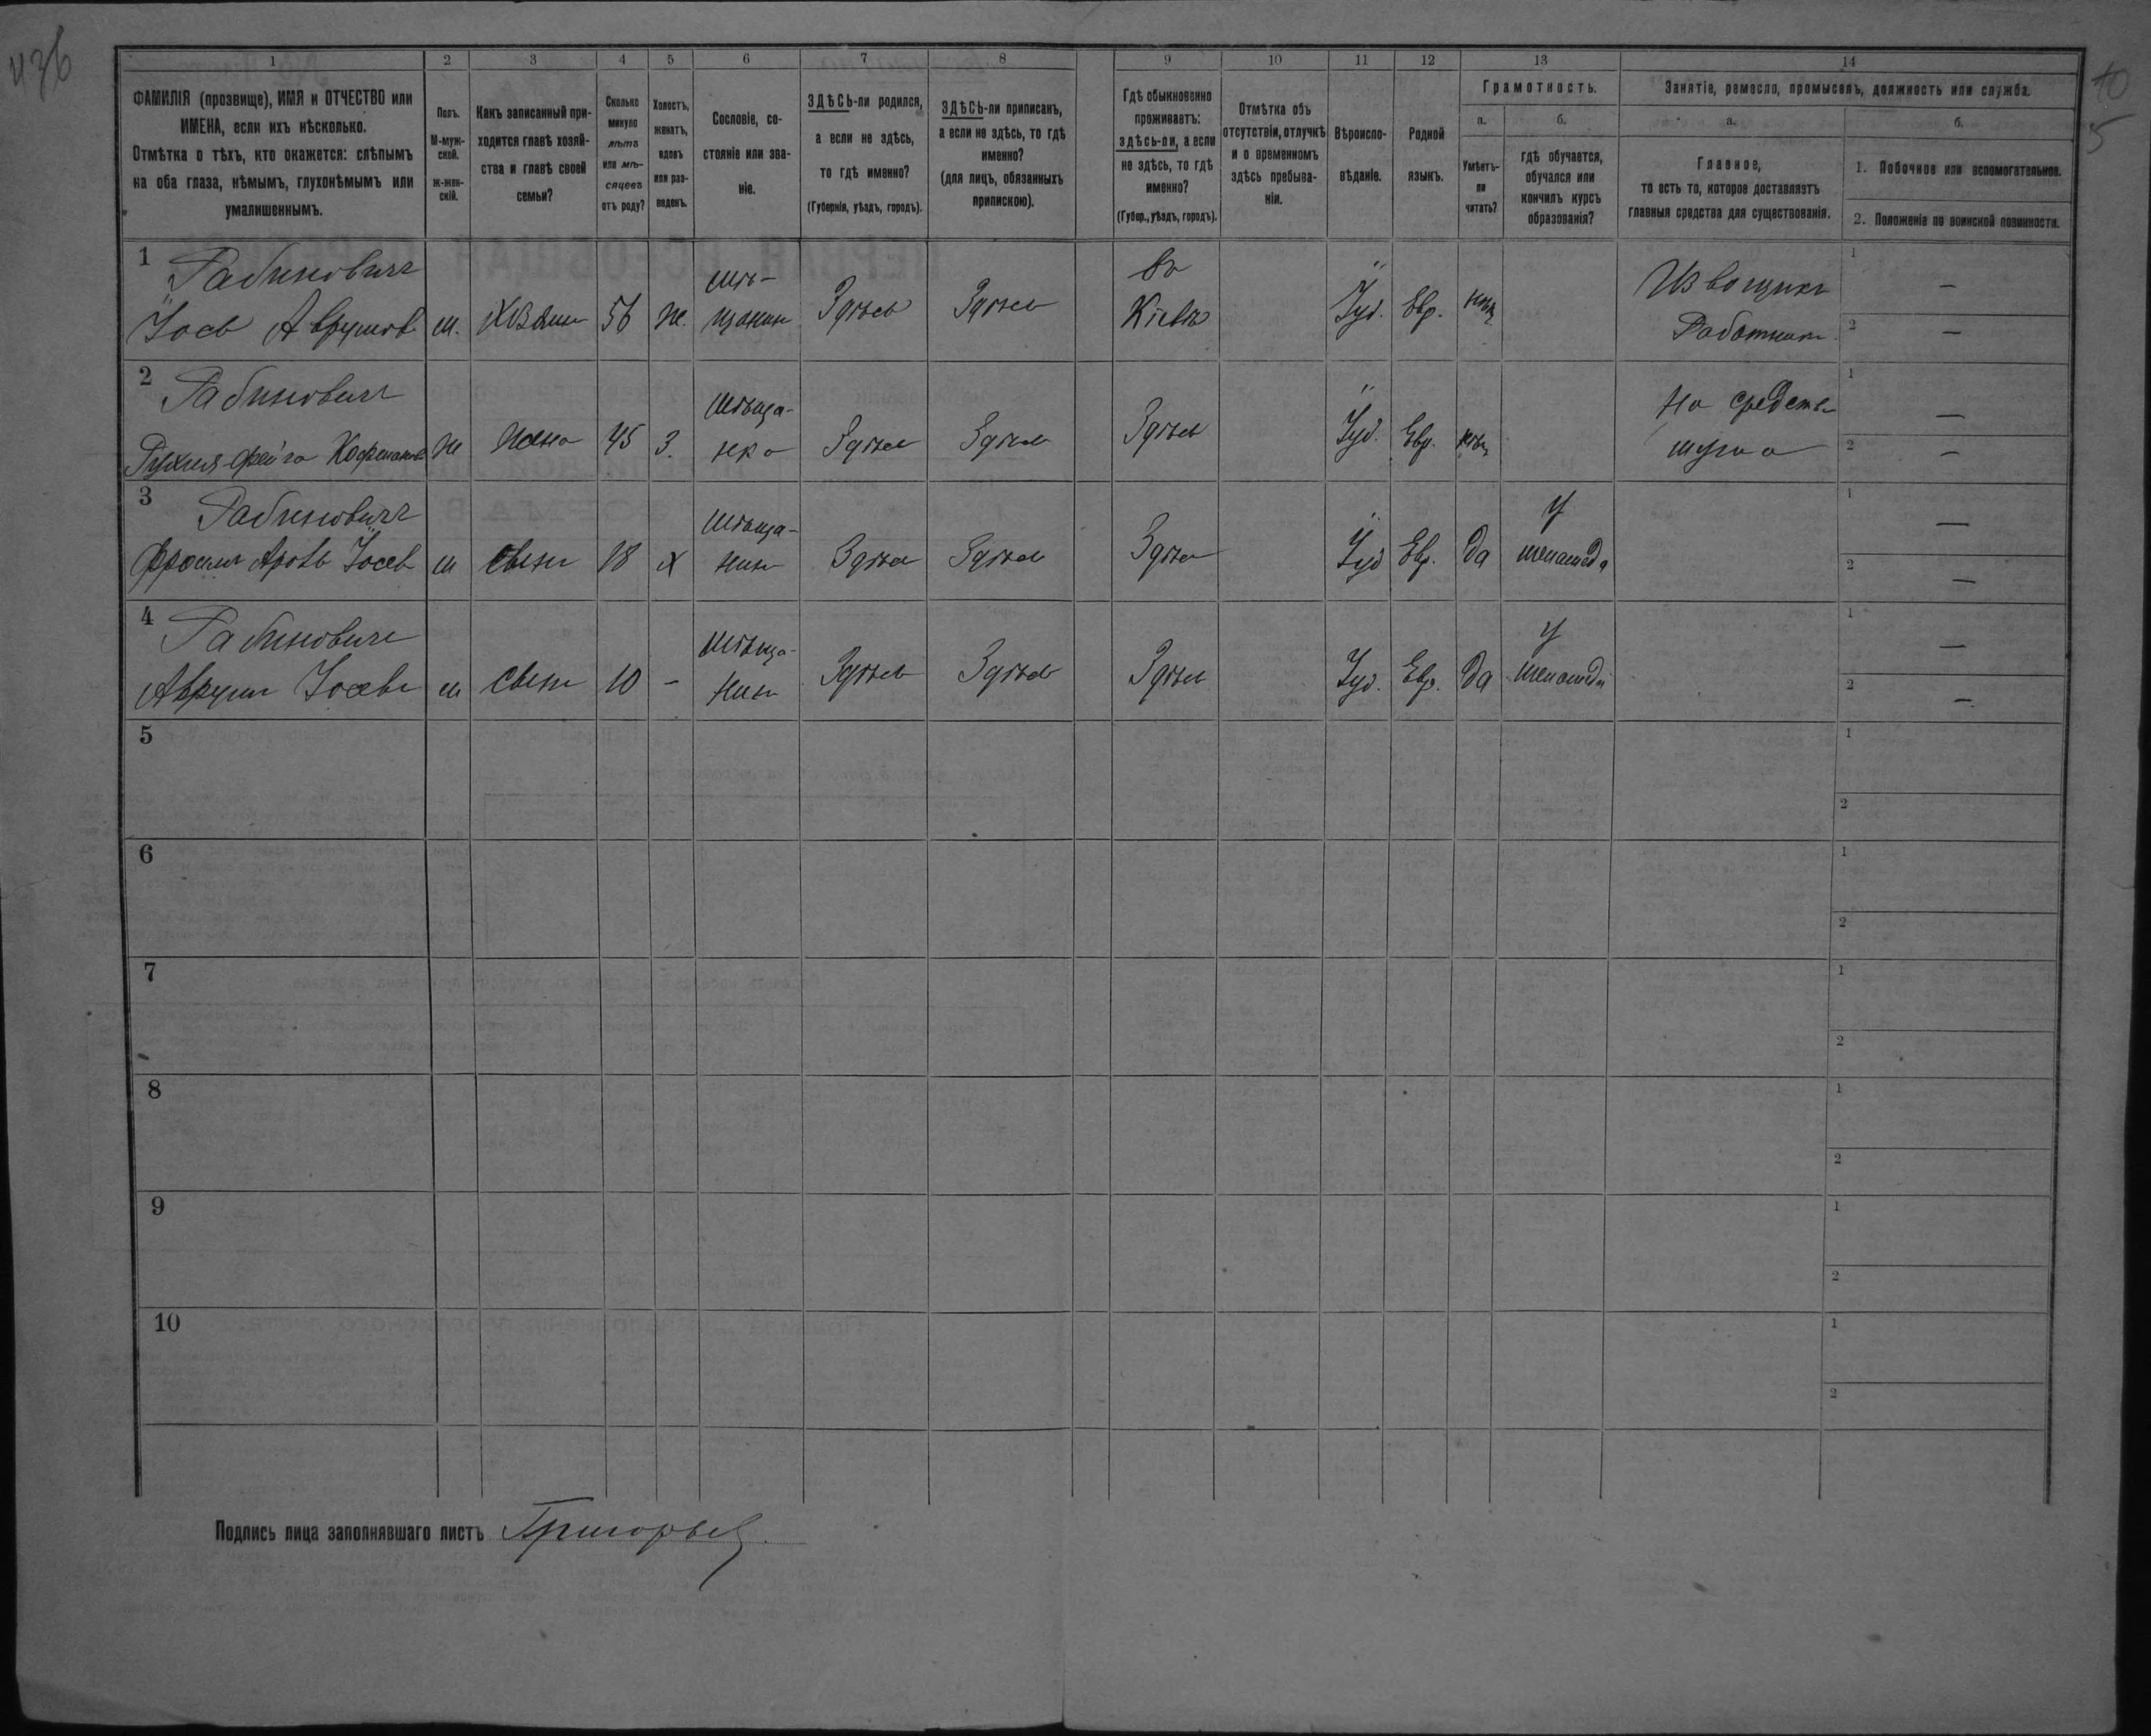 436
10
5
1 2 3 4 5 6 7 8 9 10 11 12 13 14
ФАМИЛІЯ (прозвище), ИМЯ и ОТЧЕСТВО или
ИМЕНА, если ихъ нѣсколько.
Отмѣтка о тѣхъ, кто окажется: слѣпымъ
на оба глаза, нѣмымъ, глухонѣмымъ или
умалишеннымъ.
Полъ.
М-муж-
ской.
Ж-жен-
скій.
Какъ записанный при-
ходится главѣ хозяй-
ства и главѣ своей
семьи?
Сколько
минуло
лѣтъ
или мѣ-
сяцевъ
отъ роду?
Холостъ,
женатъ,
вдовъ
или раз-
веденъ.
Сословіе, со-
стояніе или зва-
ніе.
ЗДѢСЬ-ли родился,
а если не здѣсь,
то гдѣ именно?
(Губернія, уѣздъ, городъ).
ЗДѢСЬ-ли приписанъ,
а если не здѣсь, то гдѣ
именно?
(для лицъ, обязанныхъ
припискою).
Гдѣ обыкновенно
проживаетъ:
здѣсь-ли, а если
не здѣсь, то гдѣ
именно?
(Губер., уѣздъ, городъ).
Отмѣтка объ
отсутствіи, отлучкѣ
и о временномъ
здѣсь пребыва-
ніи.
Вѣроиспо-
вѣданіе.
Родной
языкъ.
Грамотность.
а.
Умѣетъ-
ли
читать?
б.
гдѣ обучается,
обучался или
кончилъ курсъ
образованія?
Занятіе, ремесло, промыселъ, должность или служба.
а.
Главное,
то есть то, которое доставляетъ
главныя средства для существованія.
б.
1. Побочное или вспомогательное.
2. Положеніе по воинской повинности.
1 Рабиновичъ
Іосъ Аврумовъ м. Хозяин 56 ж. мѣ-
щанин Здѣсь Здѣсь Въ
Кіевѣ Іуд. Евр. нѣтъ Извощикъ
Работник
1 —
2 —
2 Рабиновичъ
Рухля-Фейга Ж жена 45 З. мѣща-
нка Здѣсь Здѣсь Здѣсь Іуд. Евр. нѣтъ На средств
мужа
1 —
2 —
3 Рабиновичъ
Іосев м сынъ 18 Х мѣща-
нин Здѣсь Здѣсь Здѣсь Іуд Евр. Да У
меламеда
1 —
2 —
4 Рабиновичъ
Аврум Іосевъ м сынъ 10 - мѣща-
нин Здѣсь Здѣсь Здѣсь Іуд. Евр. Да У
меламеда
1 —
2 —
5 1
2
6 1
2
7 1
2
8 1
2
9 1
2
10 1
2
Подпись лица заполнявшаго листъ Григорьев